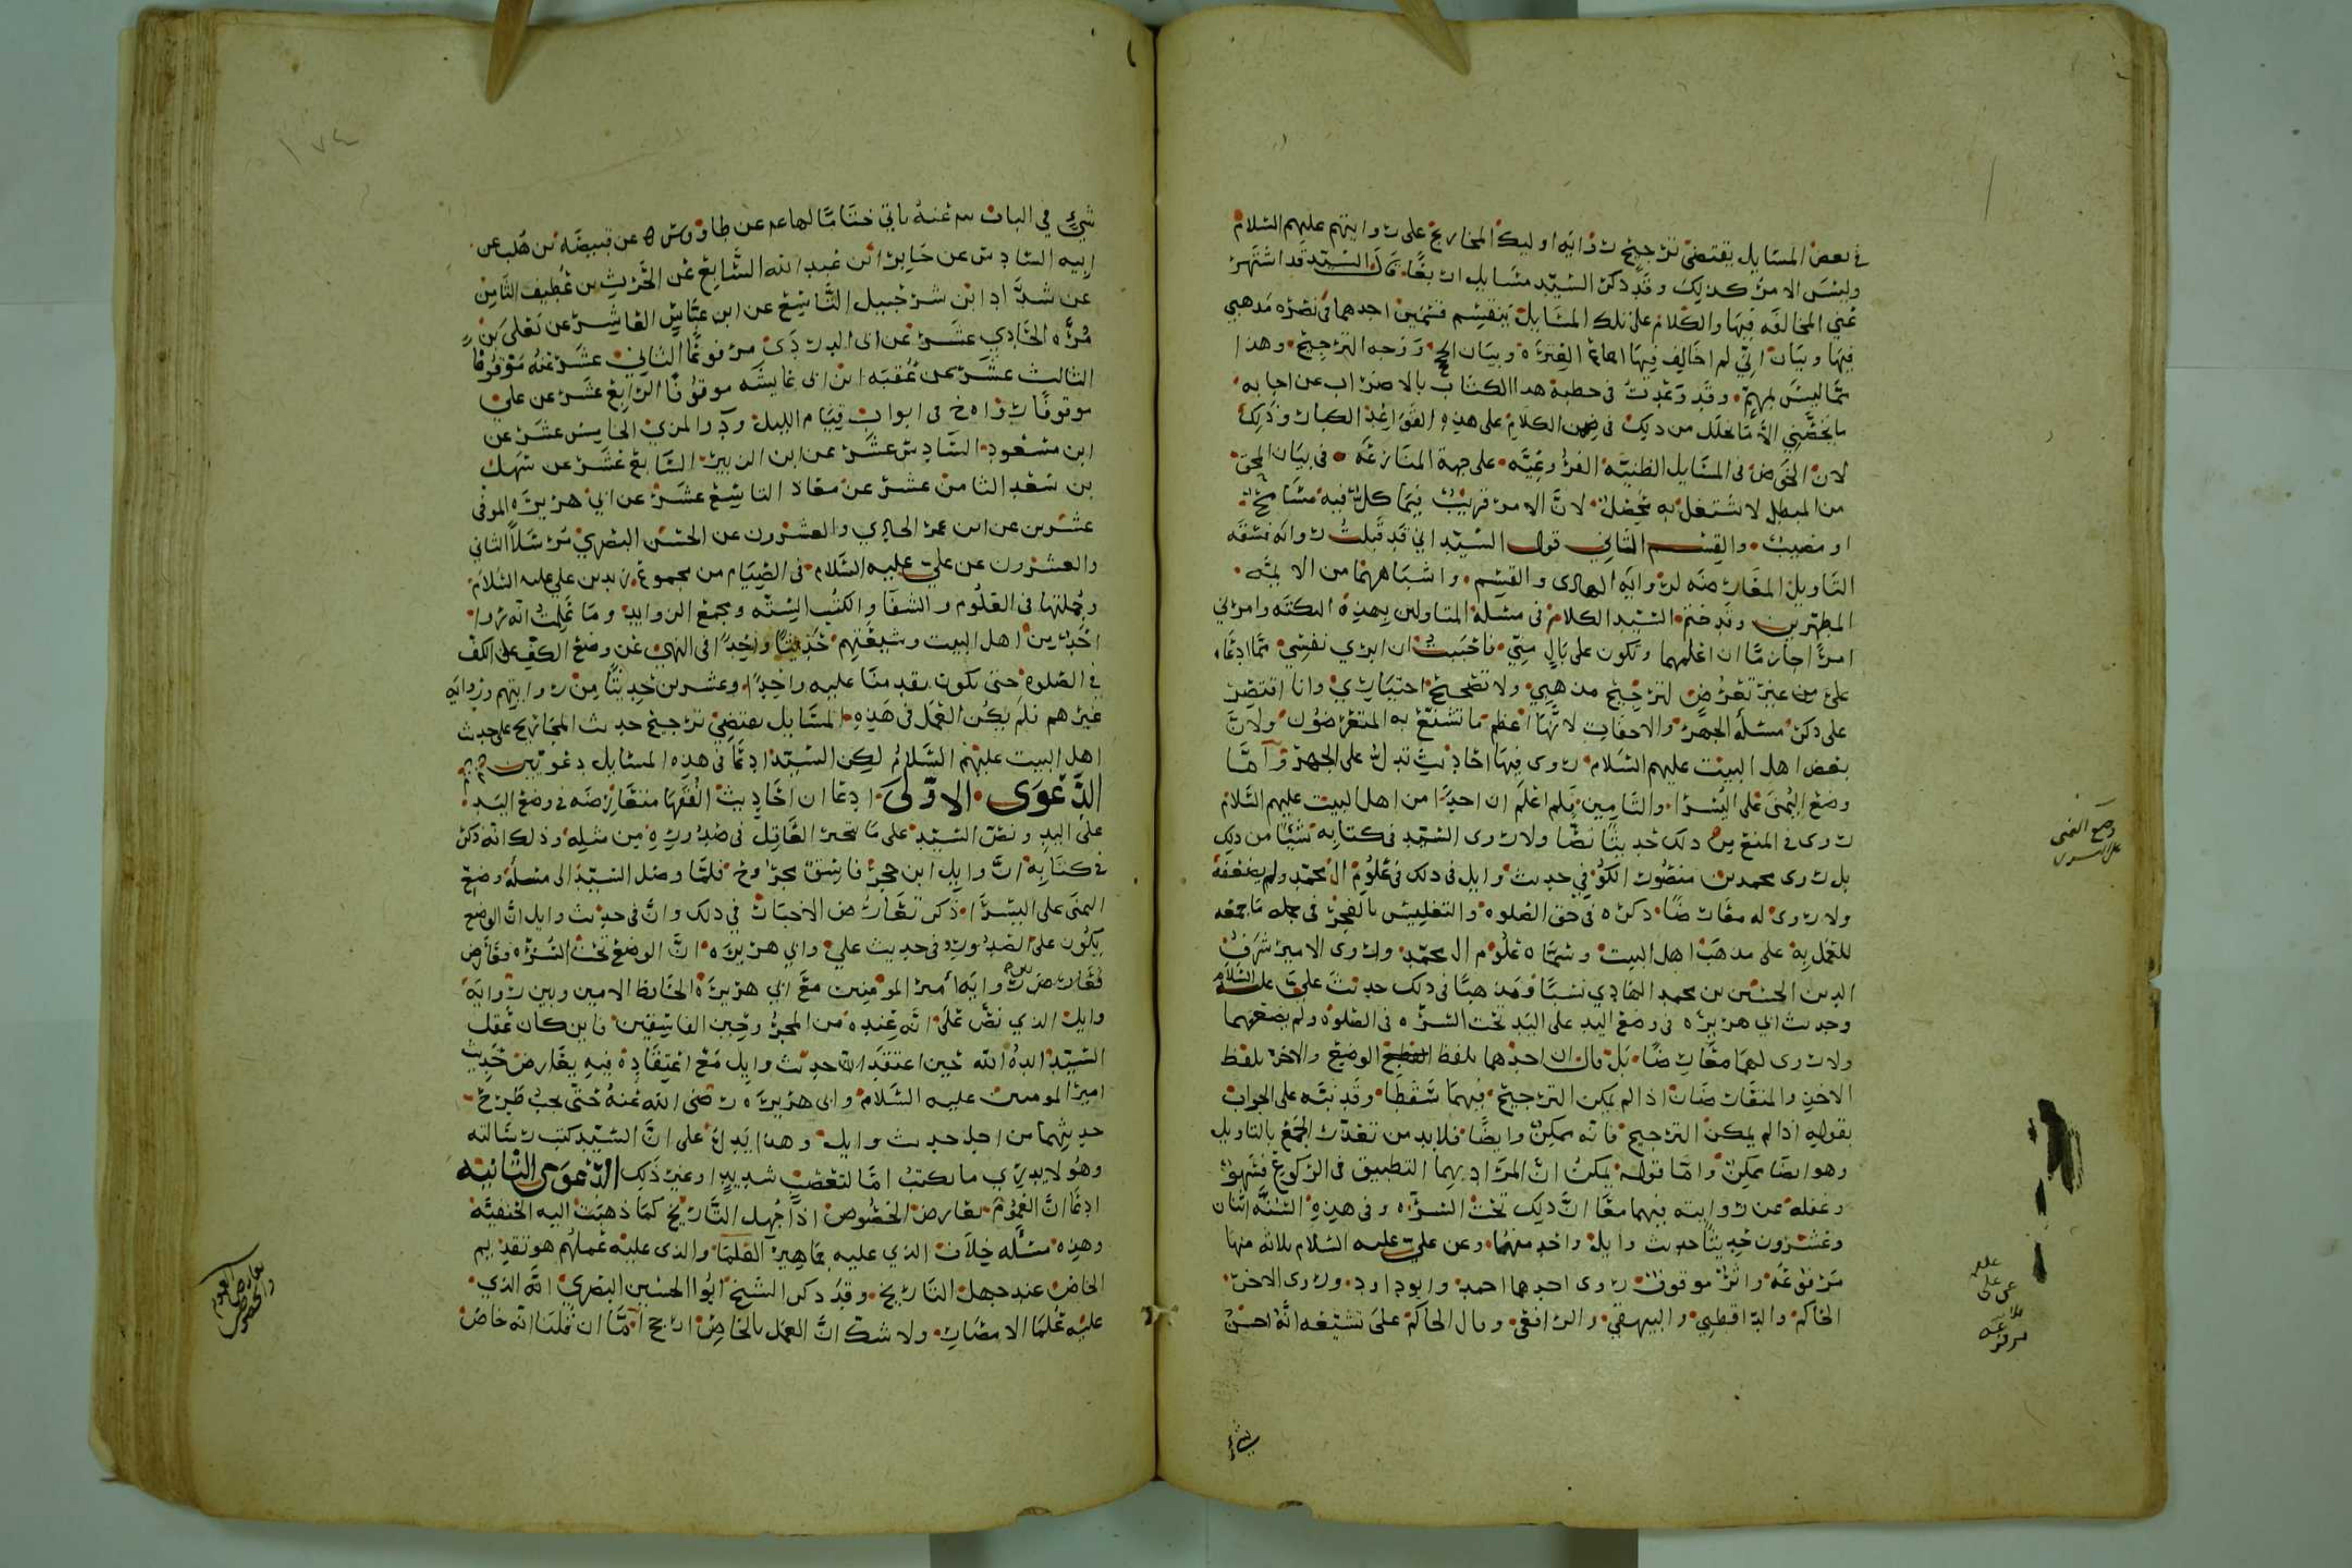 في بعض المسايل يقتضي ترجيح رواية اوليك المخاريج على روايتهم عليهم السلام
وليس الامر كذلك وقد ذكر السيد مسايل اربعًا قال السيد قد اشتهر
عني المخالفه فيها والكلام على تلك المسايل ينقسم قسمين احدهما في نصره مذهبي
فيها وبيان اني لم اخالف فيها اجماع العترة وبيان الحجج ووجه الترجيح وهذا
مما ليس بمهم وقد وعدت في خطبة هذا الكتاب بالاضراب عن اجابه
ما يخصني الا ما تخلل من ذلك في ضمن الكلام على هذه القواعد الكبار وذلك
لان الخوض في المسايل الظنية الفروعيه على جهة المنازعه في بيان المحق
من المبطل لا يشتغل به محصل لان الامر قريب فيما كل فيه مسامح
او مصيب والقسم الثاني قول السيد اني قد قبلت رواية فسقه
التاويل المعارضه لرواية الهادى والقسم واشباههما من الايمه
المطهرين وقد ختم السيد الكلام في مسلة المتاولين بهذه النكته وامرني
امرًا جازمًا ان اعلمهما وتكون على بال مني فاحببت ان ابري نفسي مما ادعاه
على من غير تعرض لترجيح مذهبي ولا تصحيح اختياري وانا اقتصر
على ذكر مسئلة الجهر والاخفات لانها اعظم ما تشنع به المتعرضون ولان
بعض اهل البيت عليهم السلام روى فيها احاديث تدل على الجهر واما
وضع اليمنى على اليسرا والتامين فلم اعلم ان احدًا من اهل البيت عليهم السلام
روى في المنع من ذلك حديثًا نصًا ولا روى السيد في كتابه شيًا من ذلك
بل روى محمد بن منصور الكوفي حديث وايل في ذلك في علوم ال محمد ولم يضعفه
ولا روى له معارضًا ذكره في حق الصلوه والتغليس بالفجر في جمله ما جمعه
للعمل به على مذهب اهل البيت وسماه علوم ال محمد وروى الامير شرف
الدين الحسين بن محمد الهادي نسبًا ومذهبًا في ذلك حديث علي عليه السلام
وحديث ابي هريره في وضع اليد على اليد تحت السره في الصلوه ولم يضعفهما
ولا روى لهما معارضًا بل قال ان احدهما بلفظ الوضع والاخر بلفظ
الاخذ والمتعارضان اذا لم يمكن الترجيح فيهما سقطا وقد نبه على الجواب
بقوله اذا لم يمكن الترجيح فانه ممكن وايضًا فلا بد من تعذر الجمع بالتاويل
وهو ايضا ممكن واما قوله يمكن ان المراد بهما التطبيق في الركوع فسهو
وغفله عن روايته فيهما معًا ان ذلك تحت السره وفي هذه السنه اثنان
وعشرون حديثًا حديث وايل واحد منهما وعن علي عليه السلام ثلاثه منها
مرفوعه واثر موقوف روى احدها احمد وابو داود وروى الاخر
الحاكم والدارقطني والبيهقي والرافعي وقال الحاكم على تشيعه انه احسن
شيء
وضع اليمنى
على اليسرى
شيء في الباب
ابيه السادس عن جابر ابن عبد الله السابع عن الحرث بن غطيف الثامن
عن شداد ابن شرحبيل التاسع عن ابن عباس العاشر عن يعلى بن
مره الحادي عشر عن ابي الدرداء مرفوعًا الثاني عشر عنه موقوفًا
الثالث عشر عن عقبه ابن ابي عايشه موقوفًا الرابع عشر عن علي
موقوفًا رواه خ في ابواب قيام الليل والمزي الخامس عشر عن
ابن مسعود السادس عشر عن ابن الزبير السابع عشر عن سهل
بن سعد الثامن عشر عن معاذ التاسع عشر عن ابي هريره الموفي
عشرين عن ابن عمر الحادي والعشرون عن الحسن البصري مرسلًا الثاني
والعشرون عن علي عليه السلام في الصيام من مجموع زيد بن علي عليه السلام
وجملتها في العلوم والشفا والكتب السته ومجمع الزوايد وما علمت انه روا
احد من اهل البيت وشيعتهم حديثًا واحدًا في النهي عن وضع الكف على الكف
في الصلوه حتى تكون بعد منا عليه واحدًا وعشرين حديثًا من روايتهم وروايه
غيرهم فلم يكن العمل في هذه المسايل يقتضي ترجيح حديث المخاريج على حديث
اهل البيت عليهم السلام لكن السيد ادعا في هذه المسايل دعوتين
الدعوى الاولى ادعا ان احاديث الفقها متعارضه في وضع اليد
على اليد ونص السيد على ما يتحير العاقل في صدوره من مثله وذلك انه ذكر
في كتابه ان وايل ابن حجر فاسق مجروح فلما وصل السيد الى مسله وضع
اليمنى على اليسرا ذكر تعارض الاخبار في ذلك وان في حديث وايل ان الوضع
يكون على الصدور وفي حديث علي وابي هريره ان الوضع تحت السره فعارض
رواية امير المومنين مع ابي هريرة الحافظ الامين وبين رواية
وايل الذي نص على انه عنده من المجروحين الفاسقين فاين كان عقل
السيد ايده الله حين اعتقد ان حديث وايل مع اعتقاده فيه يعارض حديث
امير المومنين عليه السلام وابي هريره رضي الله عنه حتى يجب طرح
حديثهما من اجل حديث وايل وهذا يدل على ان السيد كتب رسالته
وهو لا يدري ما يكتب اما لتغضب شديد او غير ذلك الدعوى الثانيه
ادعا ان العموم يعارض الخصوص اذا جهل التاريخ كما ذهبت اليه الحنفيه
وهذه مسئله خلاف الذي عليه جماهير العلما والذي عليه عملهم هو تقديم
الخاص عند جهل التاريخ وقد ذكر الشيخ ابو الحسين البصري انه الذي
عليه علما الامصار ولا شك ان العمل بالخاص ارجح اما ان قلنا انه خاص
تعارض العموم
والخصوص
١٧٤